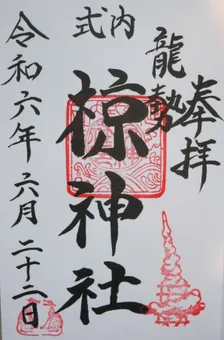 奉拝
龍勢
式内
椋神社
令和六年六月二十二日